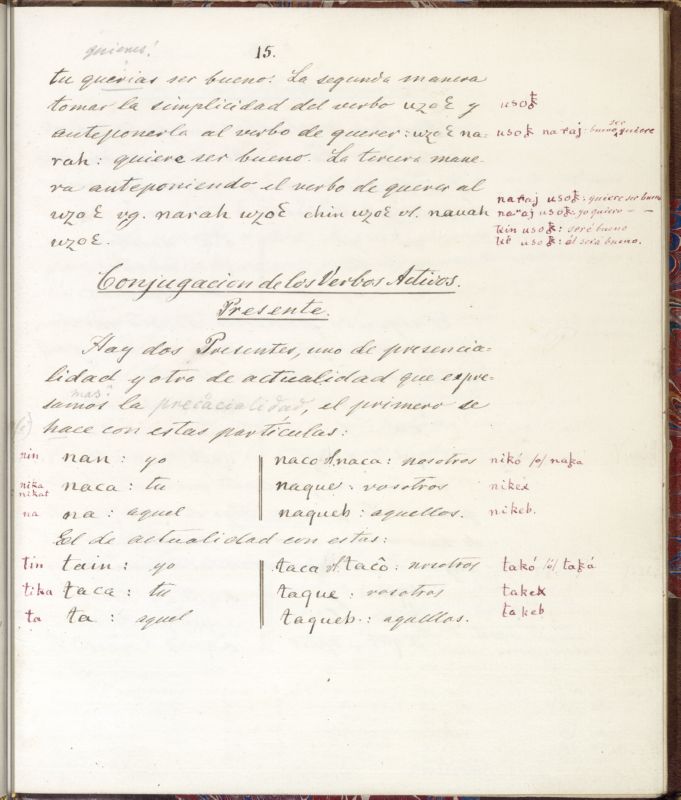 quieres!
15.
tu querias ser bueno: La segunda manera
tomar la simplicidad del verbo uzoƐ y
anteponerla al verbo de querer: uzoƐ na=
rah: quiere ser bueno. La tercera mane=
ra anteponiendo el verbo de querer al
uzoƐ vg. narah uzoƐ chin uzoƐ vl. nauah
uzoƐ.
usoꝁ
usoꝁ naraj: bueno, quiere
ser
naraj usoꝁ: quiere ser bueno
naraj usoꝁ: yo quiero — —
usoꝁ: seré bueno
usoꝁ: él será bueno.
Conjugacion de los Verbos Activos.
Presente.
Hay dos Presentes, uno de presencia=
lidad y otro de actualidad que expre=
mas
samos la, el primero se
hace con estas partículas:
nin nan: yo naco vl. naca: nosotros nikó /ó/ naka
nika naca: tu naque: vosotros nikex
nikat
na na: aquel naqueb: aquellos. nikeb.
El de actualidad con estas:
tin tain: yo taca vl. tacô: nosotros takó /ó/ taká
tika taca: tu taque: vosotros takex
ta ta: aquel taqueb: aquellos. takeb